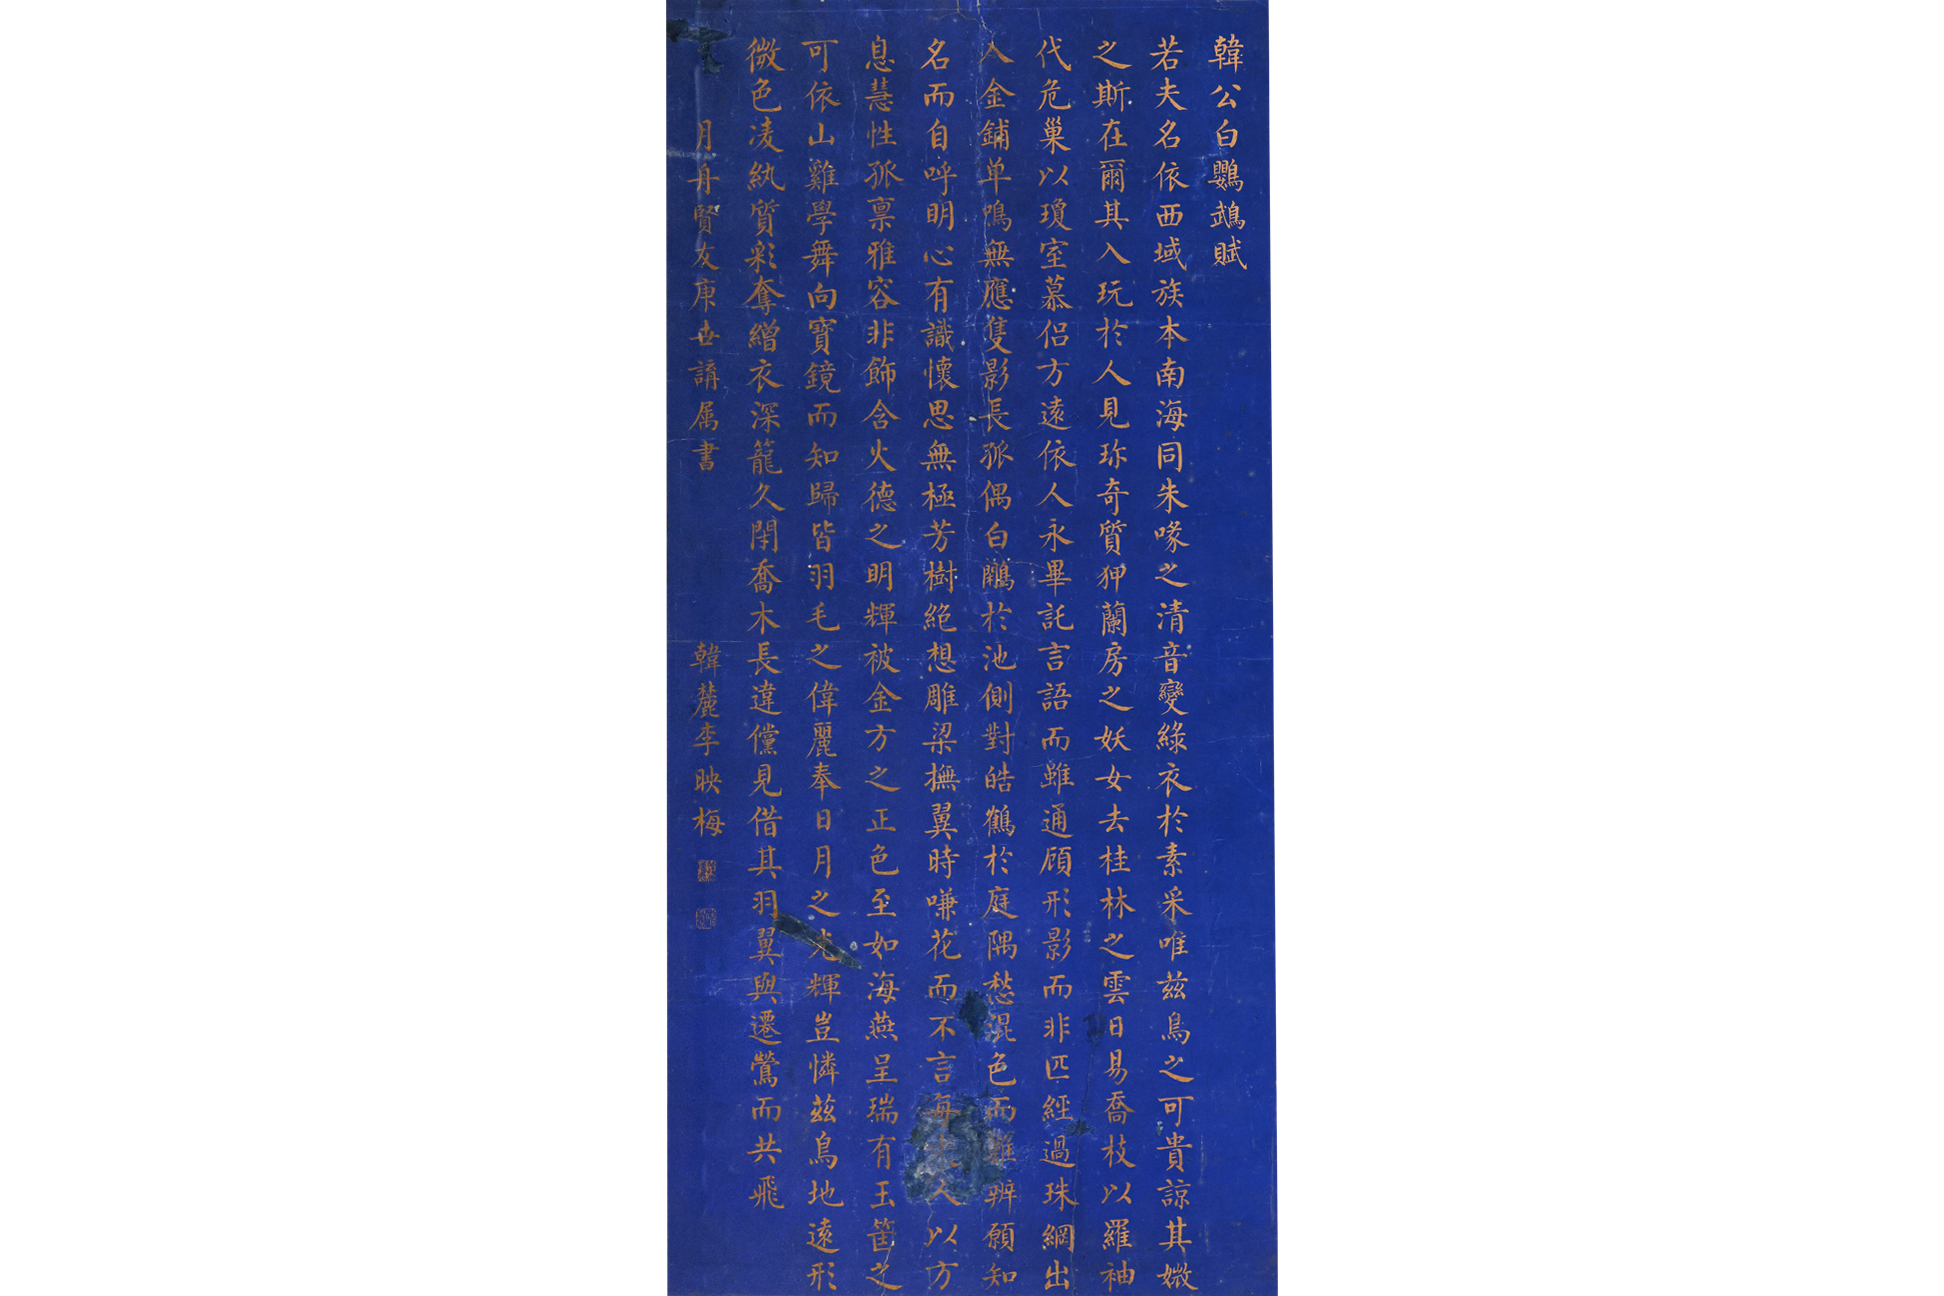 韓公白鸚鵡賦
若夫名依西域族本南海同朱喙之清音變綠衣於素采唯茲鳥之可貴諒其媺
之斯在爾其入玩於人見珎奇質狎蘭房之妖女去桂林之雲日易喬枝以羅袖
代危巢以瓊室慕侶方遠依人永畢託言語而雖通顧形影而非匹經過珠網出
入金鋪单鳴無應隻影長孤偶白鷴於池側對皓鶴於庭隅愁混色而難辨願知
名而自呼明心有識懷思無極芳樹絕想雕梁撫翼時嗛花而不言每人以方
息慧性孤禀雅容非飾含火德之明輝被金方之正色至如海燕呈瑞有玉筐之
可依山雞學舞向寶鏡而知歸皆羽毛之偉麗奉日月之光輝豈憐茲鳥地遠形
微色凌紈質彩奪繒衣深籠久閉喬木長違儻見借其羽翼與遷鶯而共飛
月舟賢友庚世講属書
韓麓李映梅